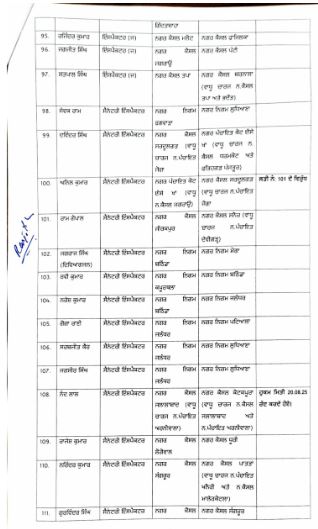 ਗਿੱਦੜਬਾਹਾ
95. ਰਜਿੰਦਰ ਕੁਮਾਰ ਇੰਸਪੈਕਟਰ (ਜ) ਨਗਰ ਕੌਂਸਲ ਮਲੋਟ ਨਗਰ ਕੌਂਸਲ ਫਾਜਿਲਕਾ
96. ਜਗਜੀਤ ਸਿੰਘ ਇੰਸਪੈਕਟਰ (ਜ) ਨਗਰ ਕੌਂਸਲ ਨਗਰ ਕੌਂਸਲ ਪੱਟੀ
ਜਗਰਾਉਂ
97. ਸਤਪਾਲ ਸਿੰਘ ਇੰਸਪੈਕਟਰ (ਜ) ਨਗਰ ਕੌਂਸਲ ਤਪਾ ਨਗਰ ਕੌਂਸਲ ਬਰਨਾਲਾ
(ਵਾਧੂ ਚਾਰਜ ਨ.ਕੌਂਸਲ
ਤਪਾ ਅਤੇ ਭਦੌੜ)
98. ਸੇਵਕ ਰਾਮ ਸੈਨੇਟਰੀ ਇੰਸਪੈਕਟਰ ਨਗਰ ਨਿਗਮ ਨਗਰ ਨਿਗਮ ਲੁਧਿਆਣਾ
ਫਗਵਾੜਾ
99. ਦਵਿੰਦਰ ਸਿੰਘ ਸੈਨੇਟਰੀ ਇੰਸਪੈਕਟਰ ਨਗਰ ਕੌਂਸਲ ਨਗਰ ਪੰਚਾਇਤ ਕੋਟ ਈਸੇ
ਸਰਦੂਲਗੜ (ਵਾਧੂ ਖਾਂ (ਵਾਧੂ ਚਾਰਜ ਨ.
ਚਾਰਜ ਨ.ਪੰਚਾਇਤ ਕੌਂਸਲ ਧਰਮਕੋਟ ਅਤੇ
ਜੋਗਾ ਫਤਿਹਗੜ ਪੰਜਤੂਰ)
100. ਅਨਿਲ ਕੁਮਾਰ ਸੈਨੇਟਰੀ ਇੰਸਪੈਕਟਰ ਨਗਰ ਪੰਚਾਇਤ ਕੋਟ ਨਗਰ ਕੌਂਸਲ ਸਰਦੂਲਗੜ ਲੜੀ ਨੰ. 101 ਦੇ ਵਿਰੁੱਧ
ਈਸੇ ਖਾਂ (ਵਾਧੂ (ਵਾਧੂ ਚਾਰਜ ਨ.ਪੰਚਾਇਤ
ਨ.ਕੌਂਸਲ ਜਗਰਾਉਂ) ਜੋਗਾ
101. ਰਾਮ ਗੋਪਾਲ ਸੈਨੇਟਰੀ ਇੰਸਪੈਕਟਰ ਨਗਰ ਕੌਂਸਲ ਨਗਰ ਕੌਂਸਲ ਸਨੌਰ (ਵਾਧੂ
ਜੀਰਕਪੁਰ ਚਾਰਜ ਨ.ਪੰਚਾਇਤ
ਦੇਵੀਗੜ੍ਹ)
102. ਜਗਰਾਜ ਸਿੰਘ ਸੈਨੇਟਰੀ ਇੰਸਪੈਕਟਰ ਨਗਰ ਨਿਗਮ ਨਗਰ ਨਿਗਮ ਮੋਗਾ
ਬਠਿੰਡਾ
103. ਰਵੀ ਕੁਮਾਰ ਸੈਨੇਟਰੀ ਇੰਸਪੈਕਟਰ ਨਗਰ ਨਿਗਮ ਨਗਰ ਨਿਗਮ ਬਠਿੰਡਾ
ਕਪੂਰਥਲਾ
104. ਨਰੇਸ਼ ਕੁਮਾਰ ਸੈਨੇਟਰੀ ਇੰਸਪੈਕਟਰ ਨਗਰ ਨਿਗਮ ਨਗਰ ਨਿਗਮ ਜਲੰਧਰ
ਬਠਿੰਡਾ
105. ਰਾਣੀ ਸੈਨੇਟਰੀ ਇੰਸਪੈਕਟਰ ਨਗਰ ਨਿਗਮ ਨਗਰ ਨਿਗਮ ਪਟਿਆਲਾ
ਜਲੰਧਰ
106. ਸਰਬਜੀਤ ਕੌਰ ਸੈਨੇਟਰੀ ਇੰਸਪੈਕਟਰ ਨਗਰ ਨਿਗਮ ਨਗਰ ਨਿਗਮ ਲੁਧਿਆਣਾ
ਜਲੰਧਰ
107. ਜਸਬੀਰ ਸਿੰਘ ਸੈਨੇਟਰੀ ਇੰਸਪੈਕਟਰ ਨਗਰ ਨਿਗਮ ਨਗਰ ਨਿਗਮ ਲੁਧਿਆਣਾ
ਜਲੰਧਰ
108. ਨੰਦ ਲਾਲ ਸੈਨੇਟਰੀ ਇੰਸਪੈਕਟਰ ਨਗਰ ਕੌਂਸਲ ਨਗਰ ਕੌਂਸਲ ਕੋਟਕਪੂਰਾ ਹੁਕਮ ਮਿਤੀ 20.08.25
ਜਲਾਲਾਬਾਦ (ਵਾਧੂ (ਵਾਧੂ ਚਾਰਜ ਨ.ਕੌਂਸਲ ਰੱਦ ਕਰਦੇ ਹੋਏ।
ਚਾਰਜ ਨ.ਪੰਚਾਇਤ ਜਲਾਲਾਬਾਦ ਅਤੇ
ਅਰਨੀਵਾਲਾ) ਨ.ਪੰਚਾਇਤ ਅਰਨੀਵਾਲਾ)
109. ਰਾਜੇਸ਼ ਕੁਮਾਰ ਸੈਨੇਟਰੀ ਇੰਸਪੈਕਟਰ ਨਗਰ ਕੌਂਸਲ ਨਗਰ ਕੌਂਸਲ ਧੂਰੀ
ਲੌਂਗੋਵਾਲ
110. ਨਰਿੰਦਰ ਕੁਮਾਰ ਸੈਨੇਟਰੀ ਇੰਸਪੈਕਟਰ ਨਗਰ ਕੌਂਸਲ ਨਗਰ ਕੌਂਸਲ ਪਾਤੜਾਂ
ਸੰਗਰੂਰ (ਵਾਧੂ ਚਾਰਜ ਨ.ਪੰਚਾਇਤ
ਖਨੌਰੀ ਅਤੇ ਨ.ਕੌਂਸਲ
ਮਾਲੇਰਕੋਟਲਾ)
111. ਗੁਰਵਿੰਦਰ ਸਿੰਘ ਸੈਨੇਟਰੀ ਇੰਸਪੈਕਟਰ ਨਗਰ ਕੌਂਸਲ ਨਗਰ ਕੌਂਸਲ ਸੰਗਰੂਰ